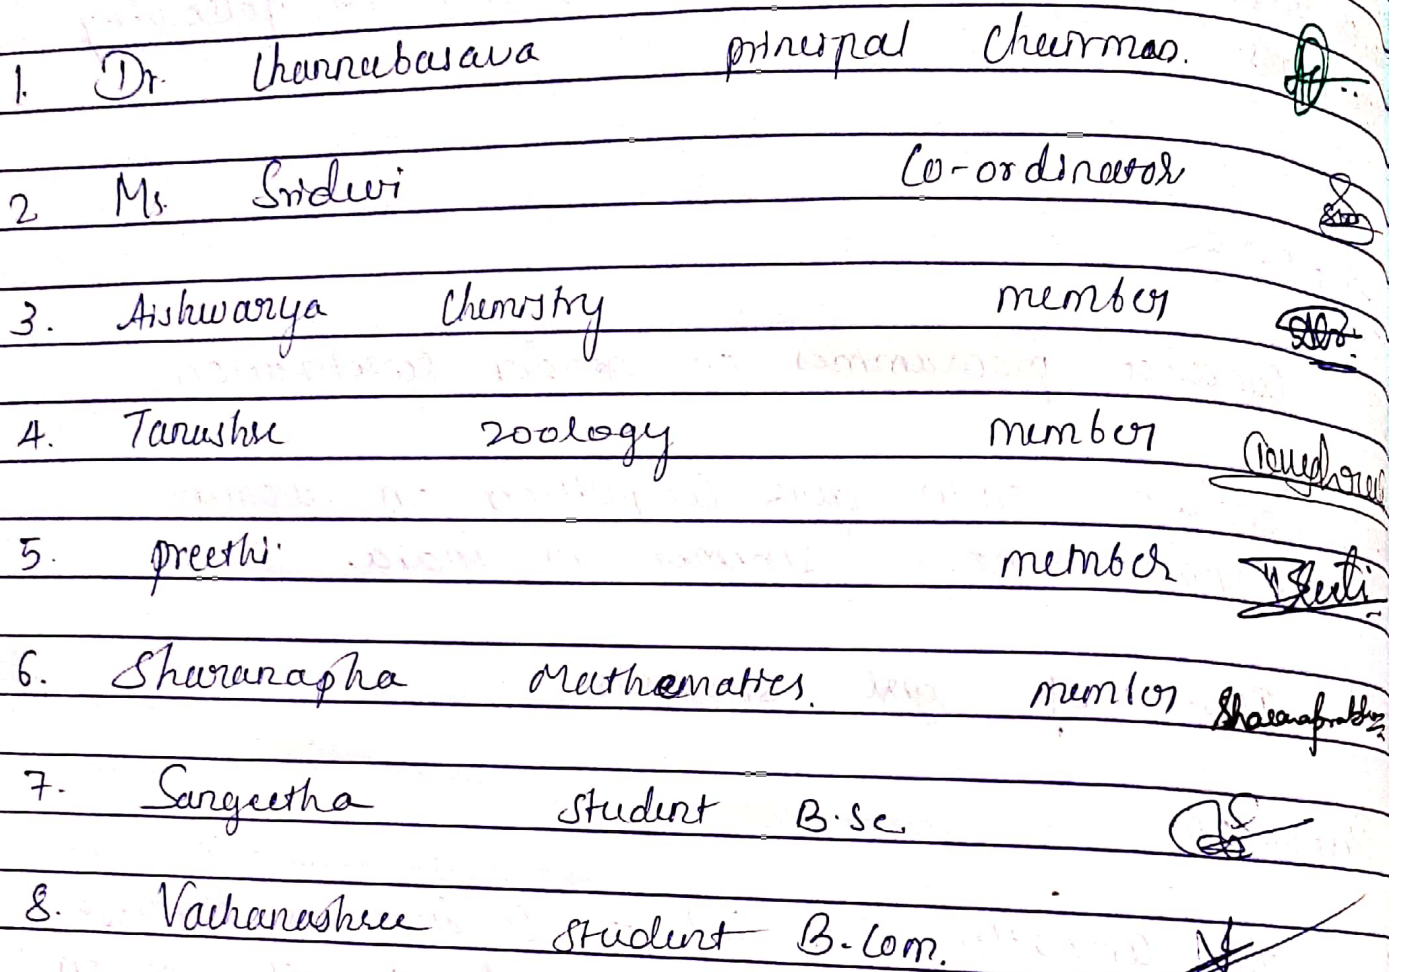 1. Dr. Channabasava principal Chairman.
2 Ms. Sridevi Co-ordinator
3. Aishwarya Chemistry member
4. Tanushree zoology member
5. preethi. member
6. Sharanapha Mathematics. member Sharanaprabhu
7. Sangeetha student B.Sc.
8. Vachanashree student B.Com.